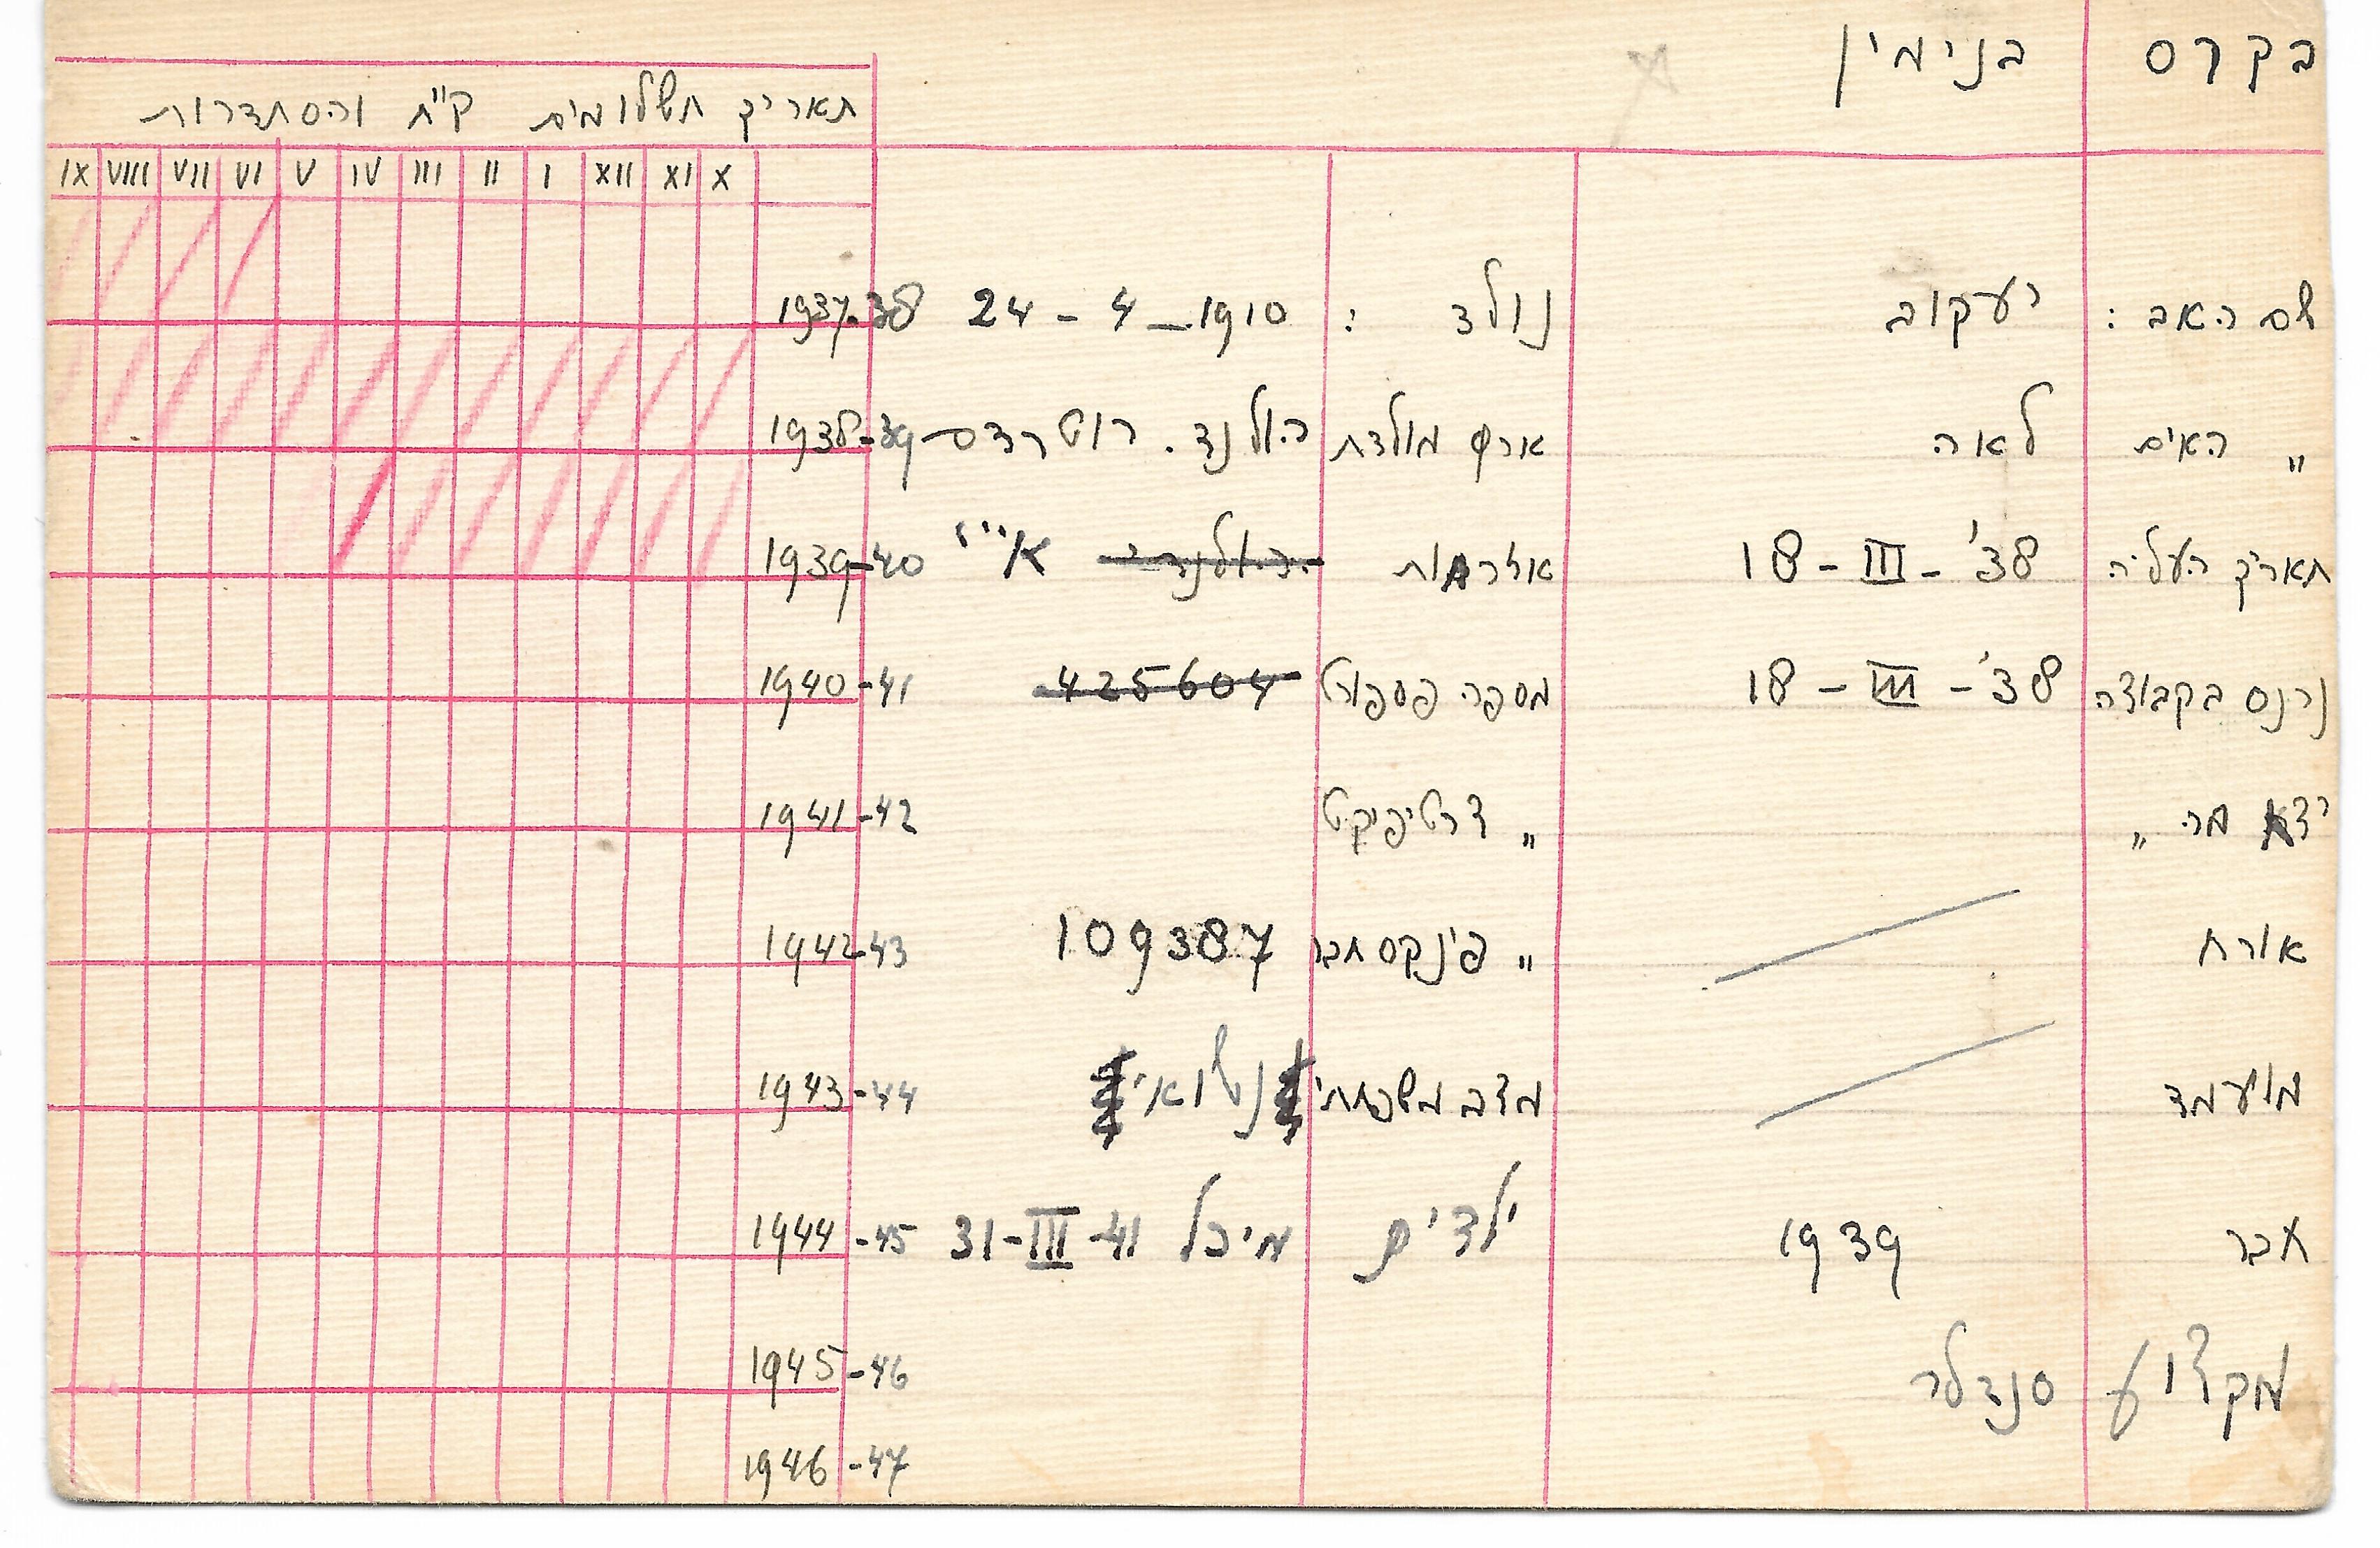 בקרס בנימין
תאריך תשלומים קו"ח והסתדרות
X XI XII I II III IV V VI VII VIII IX
שם האב : יעקוב נולד : 24 - 4 - 1910 1937-38
" האים לאה ארץ מולדת הולנד. רוטרדם 1938-39
תאריך העליה 18 - III - '38 אזרחות הולנדי א"י 1939-40
נכנס בקבוצה 18 - III - '38 מספר פספורט 425604 1940-41
יצא מה " " צרטיפיקט 1941-42
אורח " פינקס חבר 109387 1942-43
מועמד מצב משפחתי נשואי 1943-44
חבר 1939 ילדים מיכל 31-III-41 1944-45
מקצוע סנדלר 1945-46
1946-47